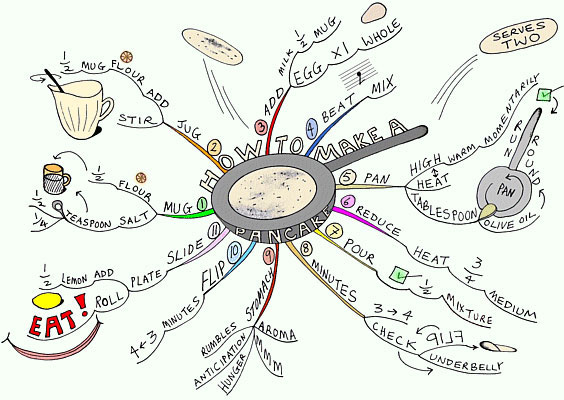 HOW TO MAKE A
PANCAKE
SERVES
TWO
1
MUG
1/2 FLOUR
1/2
1/4 TEASPOON SALT
2
JUG
1/2 MUG FLOUR ADD
STIR
3
ADD
MILK 1/2 MUG
EGG X1 WHOLE
4
BEAT
MIX
5
PAN
HIGH HEAT
WARM MOMENTARILY
TABLESPOON
OLIVE OIL
RUN ROUND
PAN
6
REDUCE
HEAT 3/4
MEDIUM
7
POUR
1/2 MIXTURE
8
MINUTES
3 → 4
CHECK
FLIP
UNDERBELLY
9
STOMACH
RUMBLES
ANTICIPATION
HUNGER
AROMA
MMM
10
FLIP
MINUTES
4 ← 3
11
SLIDE
PLATE
1/2 LEMON ADD
ROLL
EAT!